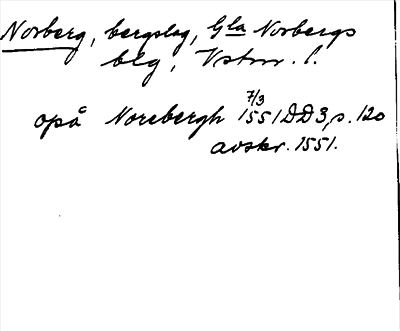 Norberg, bergslag, Gla Norbergs
blg, Vstm. l.
opå Norebergh 7/3 1551 DD3, s. 120
avskr. 1551.